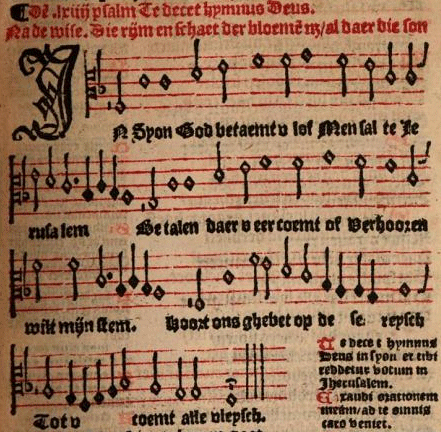 Dē .lxiiij psalm Te decet hymnus Deus.
Na de wise. Die rijm en schaet der bloemē nz/al daer die son
IN Syon God betaemt v lof Men sal te Je
rusalem Betalen daer v eer coemt of Verhooren
wilt mijn stem. Hoort ons ghebet op de se. repsch
Tot v coemt alle vleysch.
Te decet hymnus
Deus in syon et tibi
reddetur votum in
Jherusalem.
Exaudi orationem
meam/ad te omnis
caro veniet.